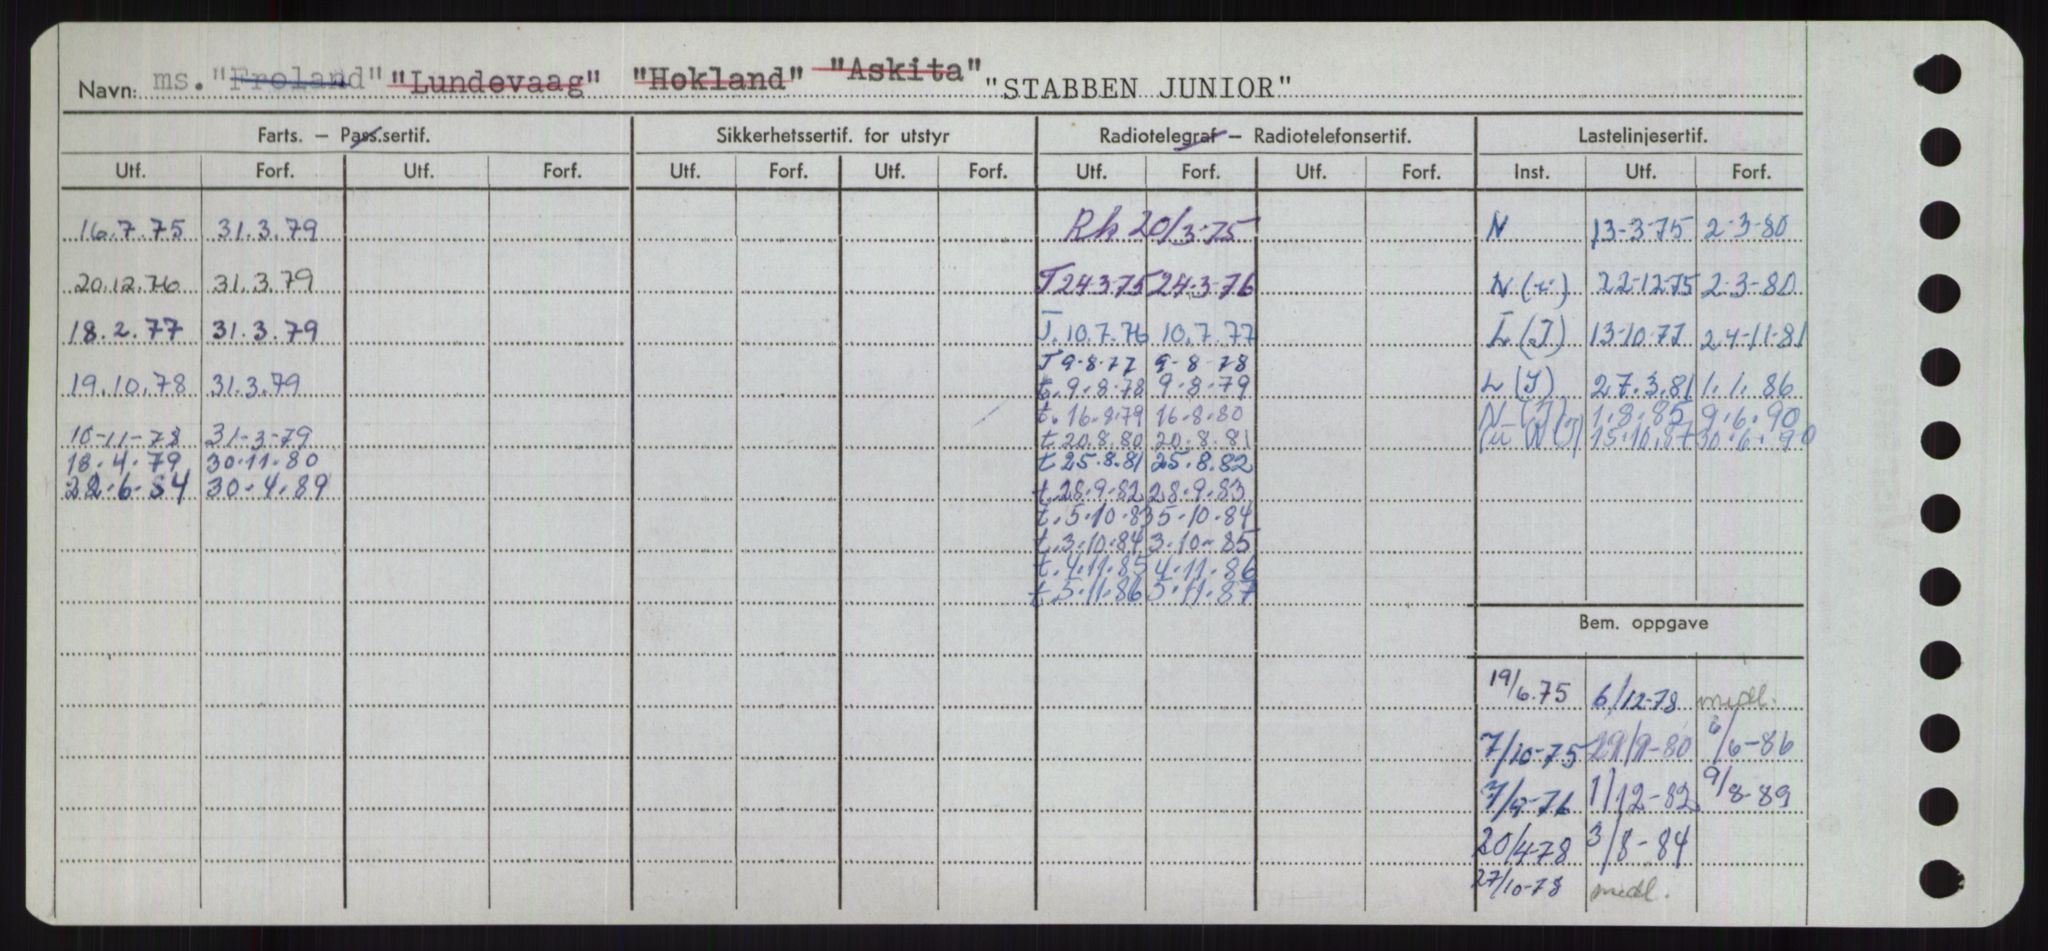 Navn: ms. "Froland" "Lundevaag" "Hokland" "Askita" "STABBEN JUNIOR"
Farts. — Pass.sertif. Sikkerhetssertif. for utstyr Radiotelegraf — Radiotelefonsertif. Lastelinjesertif.
Utf. Forf. Utf. Forf. Utf. Forf. Utf. Forf. Utf. Forf. Utf. Forf. Inst. Utf. Forf.
16.7.75 31.3.79 Rk 20/3-75 N 13-3-75 2-3-80
20.12.76 31.3.79 T 24-3-75 24-3-76 N 22-12-75 2-3-80
18.2.77 31.3.79 T. 10.7.76 10.7.77 L (J) 13-10-77 24-11-81
T 9-8-77 9-8-78
19.10.78 31.3.79 t. 9.8.78 9.8.79 L (J) 27.3.81 1.1.86
t. 16.8.79 16.8.80 N (J) 1.8.85 9.6.90
10-11-78 31-3-79 t 20.8.80 20.8.81 N (J) 15.10.87 30.6.90
18.4.79 30.11.80 t 25.8.81 25.8.82
22.6.84 30.4.89 t. 28.9.82 28.9.83
t. 5.10.83 5.10.84
t. 3.10.84 3.10-85
t. 4.11.85 4.11.86
t. 5.11.86 5.11.87
Bem. oppgave
19/6.75 6/12-78 medl.
7/10-75 29/9-80 6/6-86
7/9-76 1/12-82 9/8-89
20/4-78 3/8-84
27/10-78 medl.